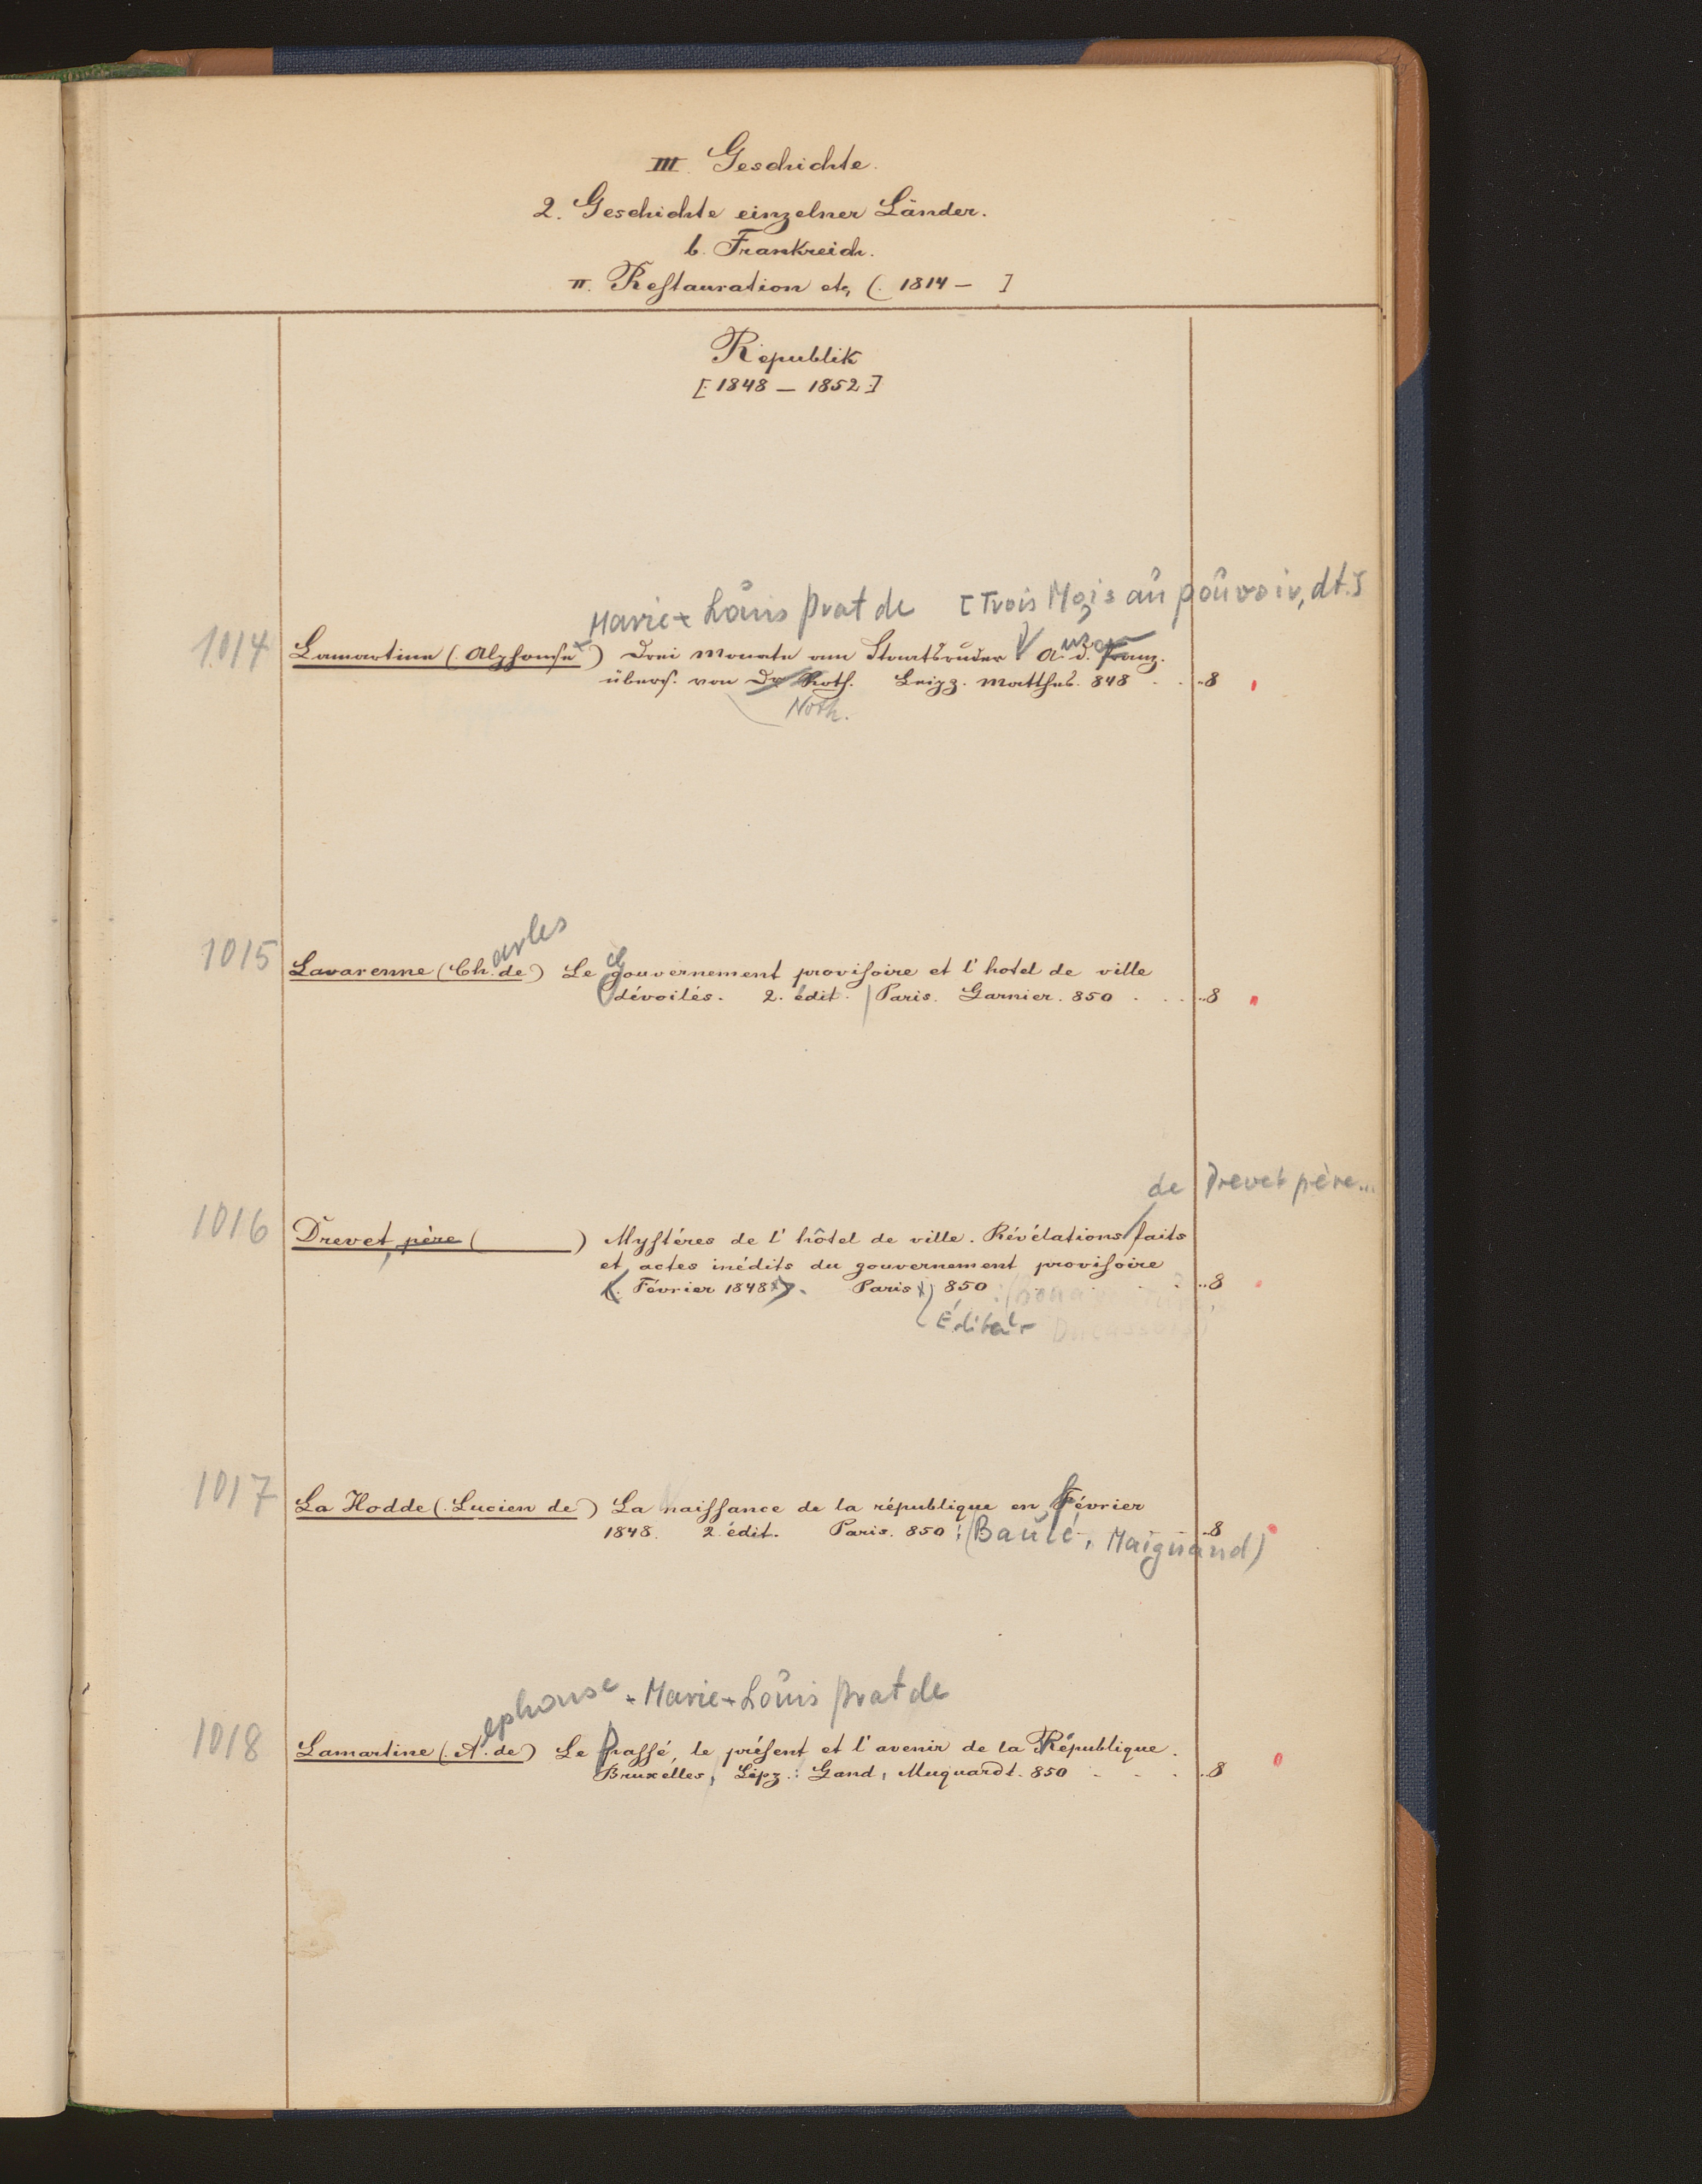 III. Geschichte.
2. Geschichte einzelner Länder.
b. Frankreich.
π. Restauration etc (. 1814 – ]
Republik
[. 1848 – 1852 .]
Marie- Louis Prat de [Trois Mois au pouvoir, dt.]
1014 Lamartine (. Alphonse ) Drei Monate am Staatsruder A. d. Franz.
übers. von Dr Roth. Leipz. Matthes. 848 . . ..8
Noth.
arles
1015 Lavarenne (Ch. de) Le gouvernement provisoire et l'hotel de ville
dévoilés. 2. édit. Paris. Garnier. 850 . . ...8
de Drevet père...
1016 Drevet, père ( ) Mystéres de l'hôtel de ville. Révélations faits
et actes inédits du gouvernement provisoire
(. Février 1848 ). Paris 850 . ..8
Éditeur
1017 La Hodde (. Lucien de) La naissance de la république en Février
1848. 2 édit. Paris. 850 : (Baulé, Maignand) ..8
lphonse - Marie- Louis Prat de
1018 Lamartine (. A. de) Le passé, le présent et l'avenir de la République.
Bruxelles, Lipz.: Gand, Muquardt. 850 . . . ..8